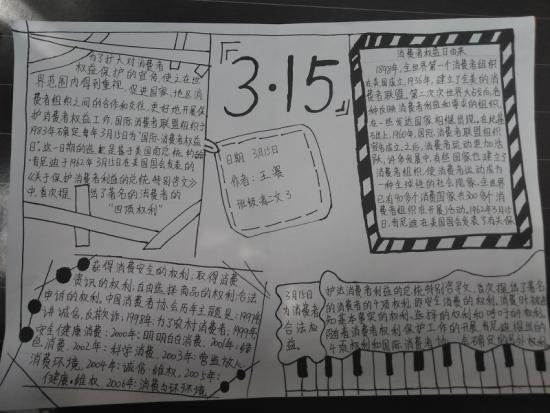 为了扩大对消费者
权益保护的宣传,使之在世
界范围内得到重视,促进国家,地区消
费者组织之间的合作和交往,更好地开展保
护消费者权益工作,国际消费者联盟组织于
1983年确定每年3月15日为"国际消费者权益
日",这一日期的选
肯尼迪于1962年3月15日在美国国会发表的
《关于保护消费者利益的总统特别咨文》
中,首次提出了著名的消费者的
"四项权利"
「3·15」
日期 3月15日
作者:王
班级
消费者权益日由来
1898年,全世界第一个消费者组织
在美国成立,1936年,建立了全美的消
费者联盟,第二次世界大战后,各
种反映消费者利益和要求的组织,
在一些发达国家相继出现,在此基
础上,1960年,国际消费者联盟组织
宣告成立,之后,消费者运动更加活
跃,许多发展中,有些国家也建立了
消费者组织,使消费者运动成为
一种全球性的社会现象,全世界
已有90多个消费国家共300多个消
费者组织在开展活动,1962年3月15
日,肯尼迪在美国国会发表了有关保
获得消费安全的权利,取得消费
资讯的权利,自由选择商品的权利,合法
申诉的权利,中国消费者协会历年主题是:1997年:
讲诚信,反欺诈,1998年:为了农村消费者,1999年:
安全健康消费,2000年:明明白白消费,2001年:绿
色消费,2002年:科学消费,2003年:营造放心
消费环境,2004年:诚信·维权,2005年:
健康·维权,2006年:消费与环境
3月15日
为消费者
合法权
益。
护法消费者利益的总统特别咨文,首次提出了著名
的消费者的4项权利,即安全消费的权利,消费时被告
知基本事实的权利,选择的权利和呼吁的权利,
随着消费者权利保护工作的开展,肯尼迪提出的
4项权利和国际消费者协会确定的另外权利